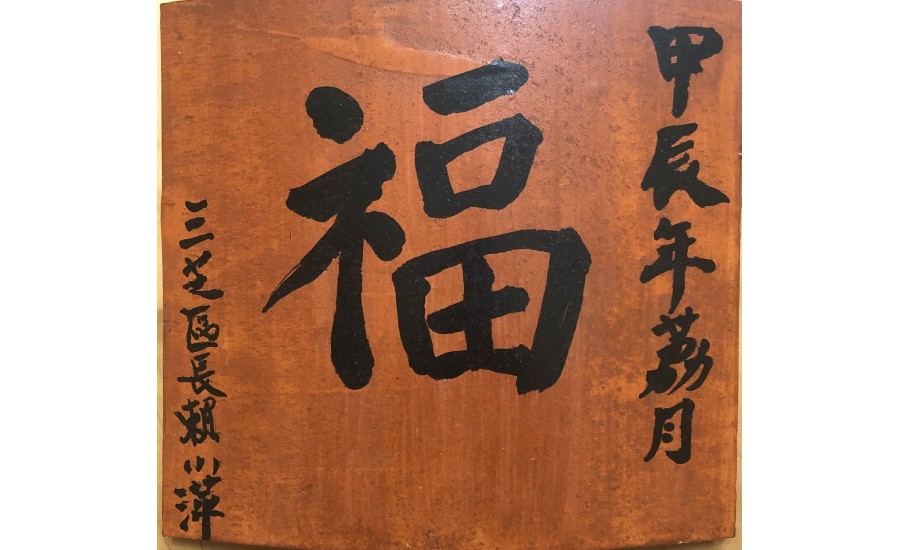 甲辰年荔月
福
三芝區長賴小萍